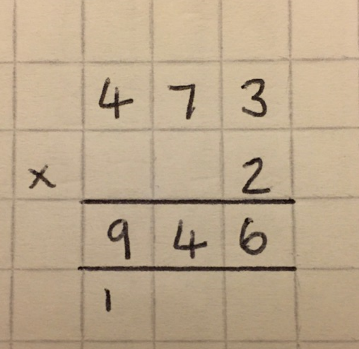 4 7 3
× 2
9 4 6
1